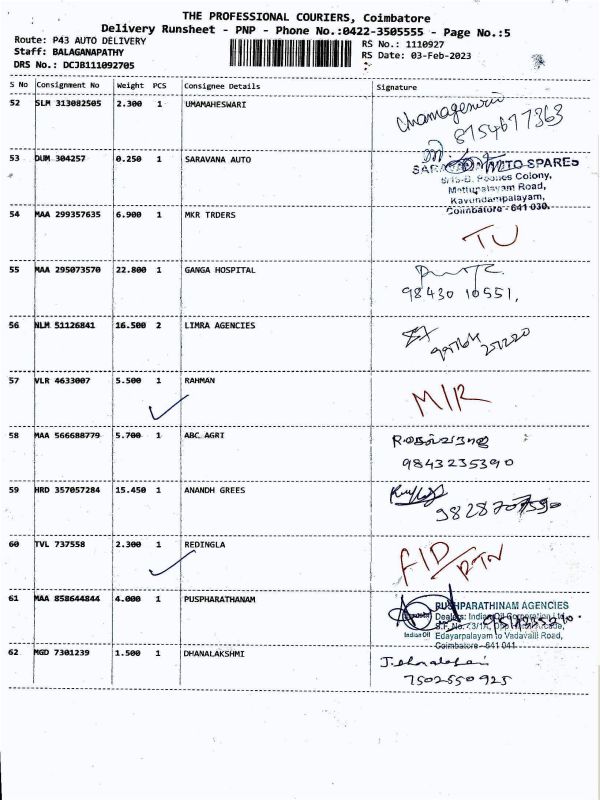 THE PROFESSIONAL COURIERS, Coimbatore
Delivery Runsheet - PNP - Phone No.:0422-3505555 - Page No.:5
Route: P43 AUTO DELIVERY RS No.: 1110927
Staff: BALAGANAPATHY RS Date: 03-Feb-2023
DRS No.: DCJB111092705
S No Consignment No Weight PCS Consignee Details Signature
52 SLM 313082505 2.300 1 UMAMAHESWARI
8754617363
53 DUM 304257 0.250 1 SARAVANA AUTO
AUTO SPARES
Colony,
Mettupalayam Road,
Kavundampalayam,
Coimbatore - 641 030.
54 MAA 299357635 6.900 1 MKR TRDERS
TU
55 MAA 295073570 22.800 1 GANGA HOSPITAL
98430 10551,
56 NLM 51126841 16.500 2 LIMRA AGENCIES
57 VLR 4633007 5.500 1 RAHMAN
M/R
58 MAA 566688779 5.700 1 ABC AGRI
9843235390
59 HRD 357057284 15.450 1 ANANDH GREES
60 TVL 737558 2.300 1 REDINGLA
FID/RTN
61 MAA 858644844 4.000 1 PUSPHARATHANAM
PUSHPARATHINAM AGENCIES
Dealers: Indian Oil Corporation Ltd.
Indian Oil Edayarpalayam to Vadavalli Road,
Coimbatore - 641 041
62 MGD 7301239 1.500 1 DHANALAKSHMI
7502550925